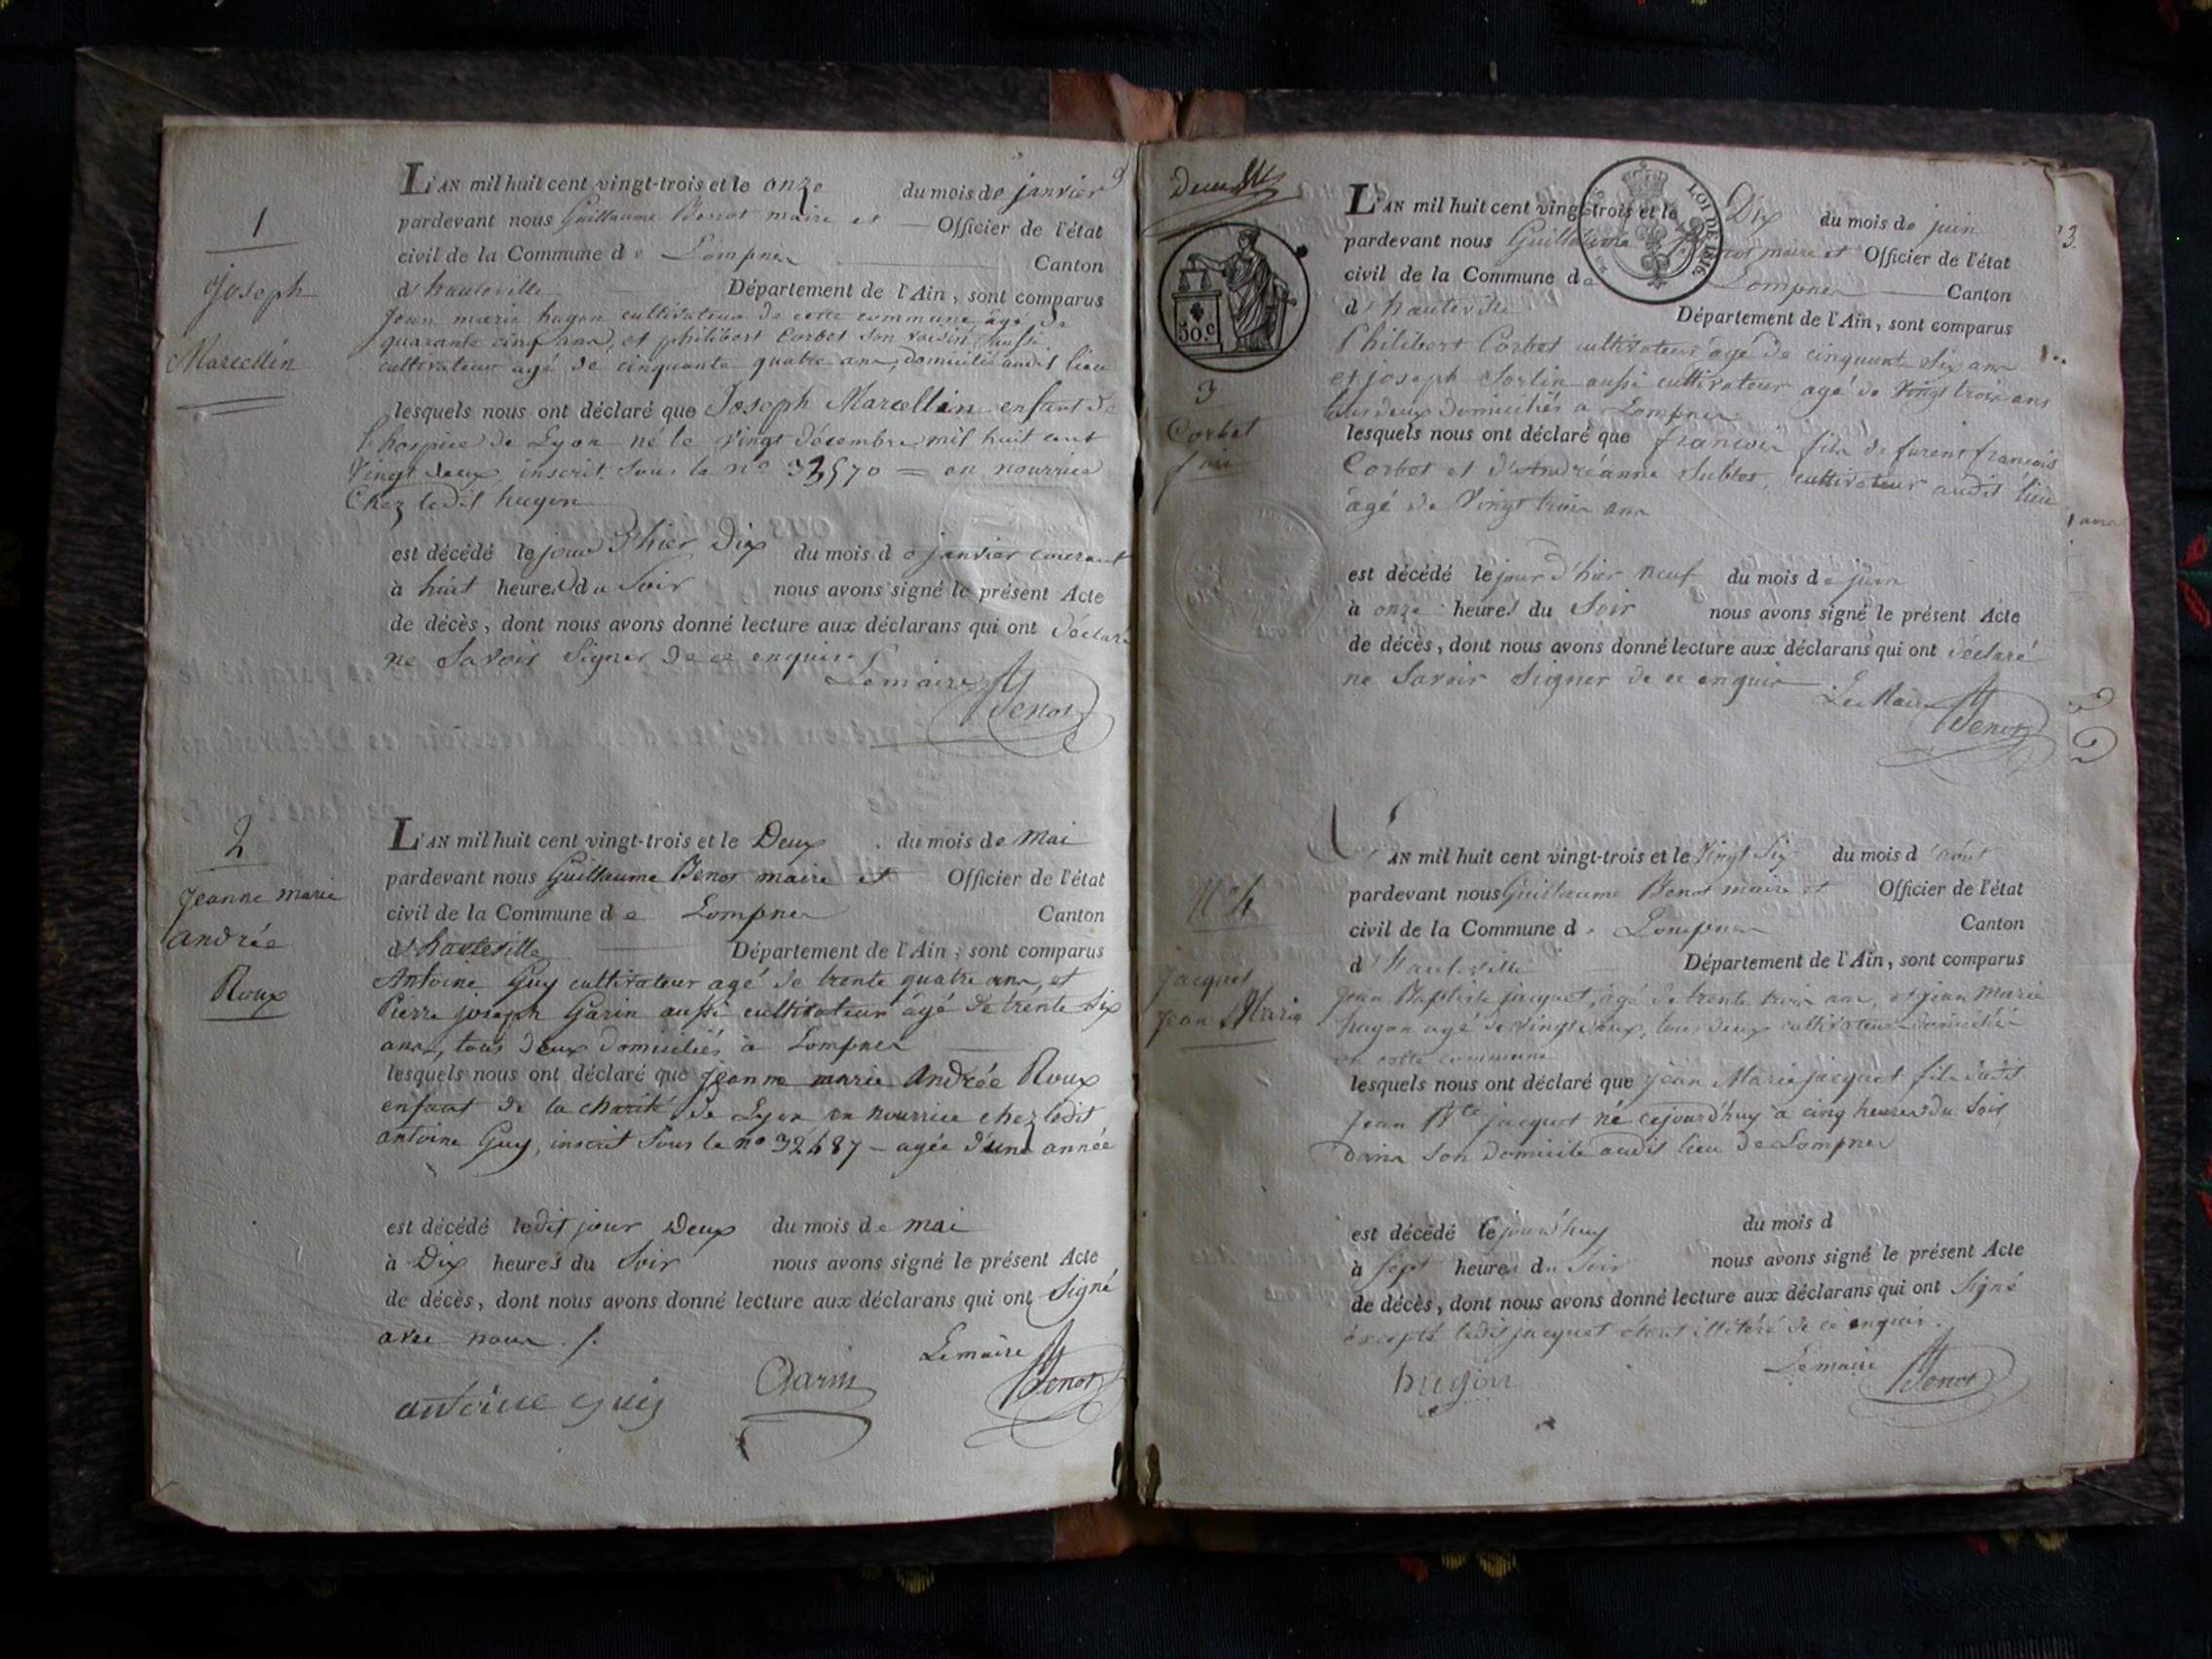 1
Joseph
Marcellin
L'AN mil huit cent vingt-trois et le onze du mois de janvier
pardevant nous Guillaume Benot maire et Officier de l'état
civil de la Commune de Lompnes Canton
d'hauteville Département de l'Ain, sont comparus
Jean marie hugon cultivateur de cette commune, agé de
quarante cinq ans, et philibert Corbet son voisin, aussi
cultivateur agé de cinquante quatre ans, domiciliés audit lieu
lesquels nous ont déclaré que Joseph Marcellin enfant de
l'hospice de Lyon né le vingt décembre mil huit cent
Vingt deux, inscrit sous le no 33570 = en nourrice
Chez ledit hugon
est décédé le jour d'hier Dix du mois de janvier courant
à huit heures du Soir nous avons signé le présent Acte
de décès, dont nous avons donné lecture aux déclarans qui ont déclaré
ne Savoir Signer de ce enquis
Lemaire Benot
2
Jeanne marie
andrée
Roux
L'AN mil huit cent vingt-trois et le Deux du mois de mai
pardevant nous Guillaume Benot maire et Officier de l'état
civil de la Commune de Lompnes Canton
d'hauteville Département de l'Ain, sont comparus
Antoine Guy cultivateur agé de trente quatre ans, et
Pierre joseph Garin aussi cultivateur agé de trente Six
ans, tous deux domiciliés à Lompnes
lesquels nous ont déclaré que Jeanne marie Andrée Roux
enfant de la charité de Lyon en nourrice chez ledit
antoine Guy, inscrit sous le no 32487 - agée d'une année
est décédé ledit jour Deux du mois de mai
à Dix heures du Soir nous avons signé le présent Acte
de décès, dont nous avons donné lecture aux déclarans qui ont Signé
avec nous ./.
Lemaire Benot
antoine guy Garin
50.c
LOI DE 1816
3
Corbet
L'AN mil huit cent vingt-trois et le Dix du mois de juin
pardevant nous Guillaume Benot maire et Officier de l'état
civil de la Commune de Lompnes Canton
d'hauteville Département de l'Ain, sont comparus
Philibert Corbet cultivateur agé de cinquante Six ans
et joseph Sorlin aussi cultivateur agé de vingt trois ans
tous deux domiciliés a Lompnes
lesquels nous ont déclaré que francois fils de furent francois
Corbet et d'Andréanne Sublet, cultivateur audit lieu
âgé de Vingt trois ans
est décédé le jour d'hier neuf du mois de juin
à onze heures du Soir nous avons signé le présent Acte
de décès, dont nous avons donné lecture aux déclarans qui ont déclaré
ne Savoir Signer de ce enquis
Le Maire Benot
No 4
Jacquet
Jean Marie
L'AN mil huit cent vingt-trois et le Vingt Six du mois d'août
pardevant nous Guillaume Benot maire et Officier de l'état
civil de la Commune de Lompnes Canton
d'hauteville Département de l'Ain, sont comparus
Jean Baptiste jacquet, âgé de trente trois ans, et jean Marie
hugon agé de vingt deux, tous deux cultivateurs domiciliés
en cette commune
lesquels nous ont déclaré que Jean Marie jacquet fils dudit
Jean Bte jacquet né cejourd'huy à cinq heures du Soir,
Dans Son domicile audit lieu de Lompnes
est décédé lejourd'huy du mois d
à Sept heures du Soir nous avons signé le présent Acte
de décès, dont nous avons donné lecture aux déclarans qui ont Signé
excepté ledit jacquet étant illitéré de ce enquis.
Lemaire Benot
hugon